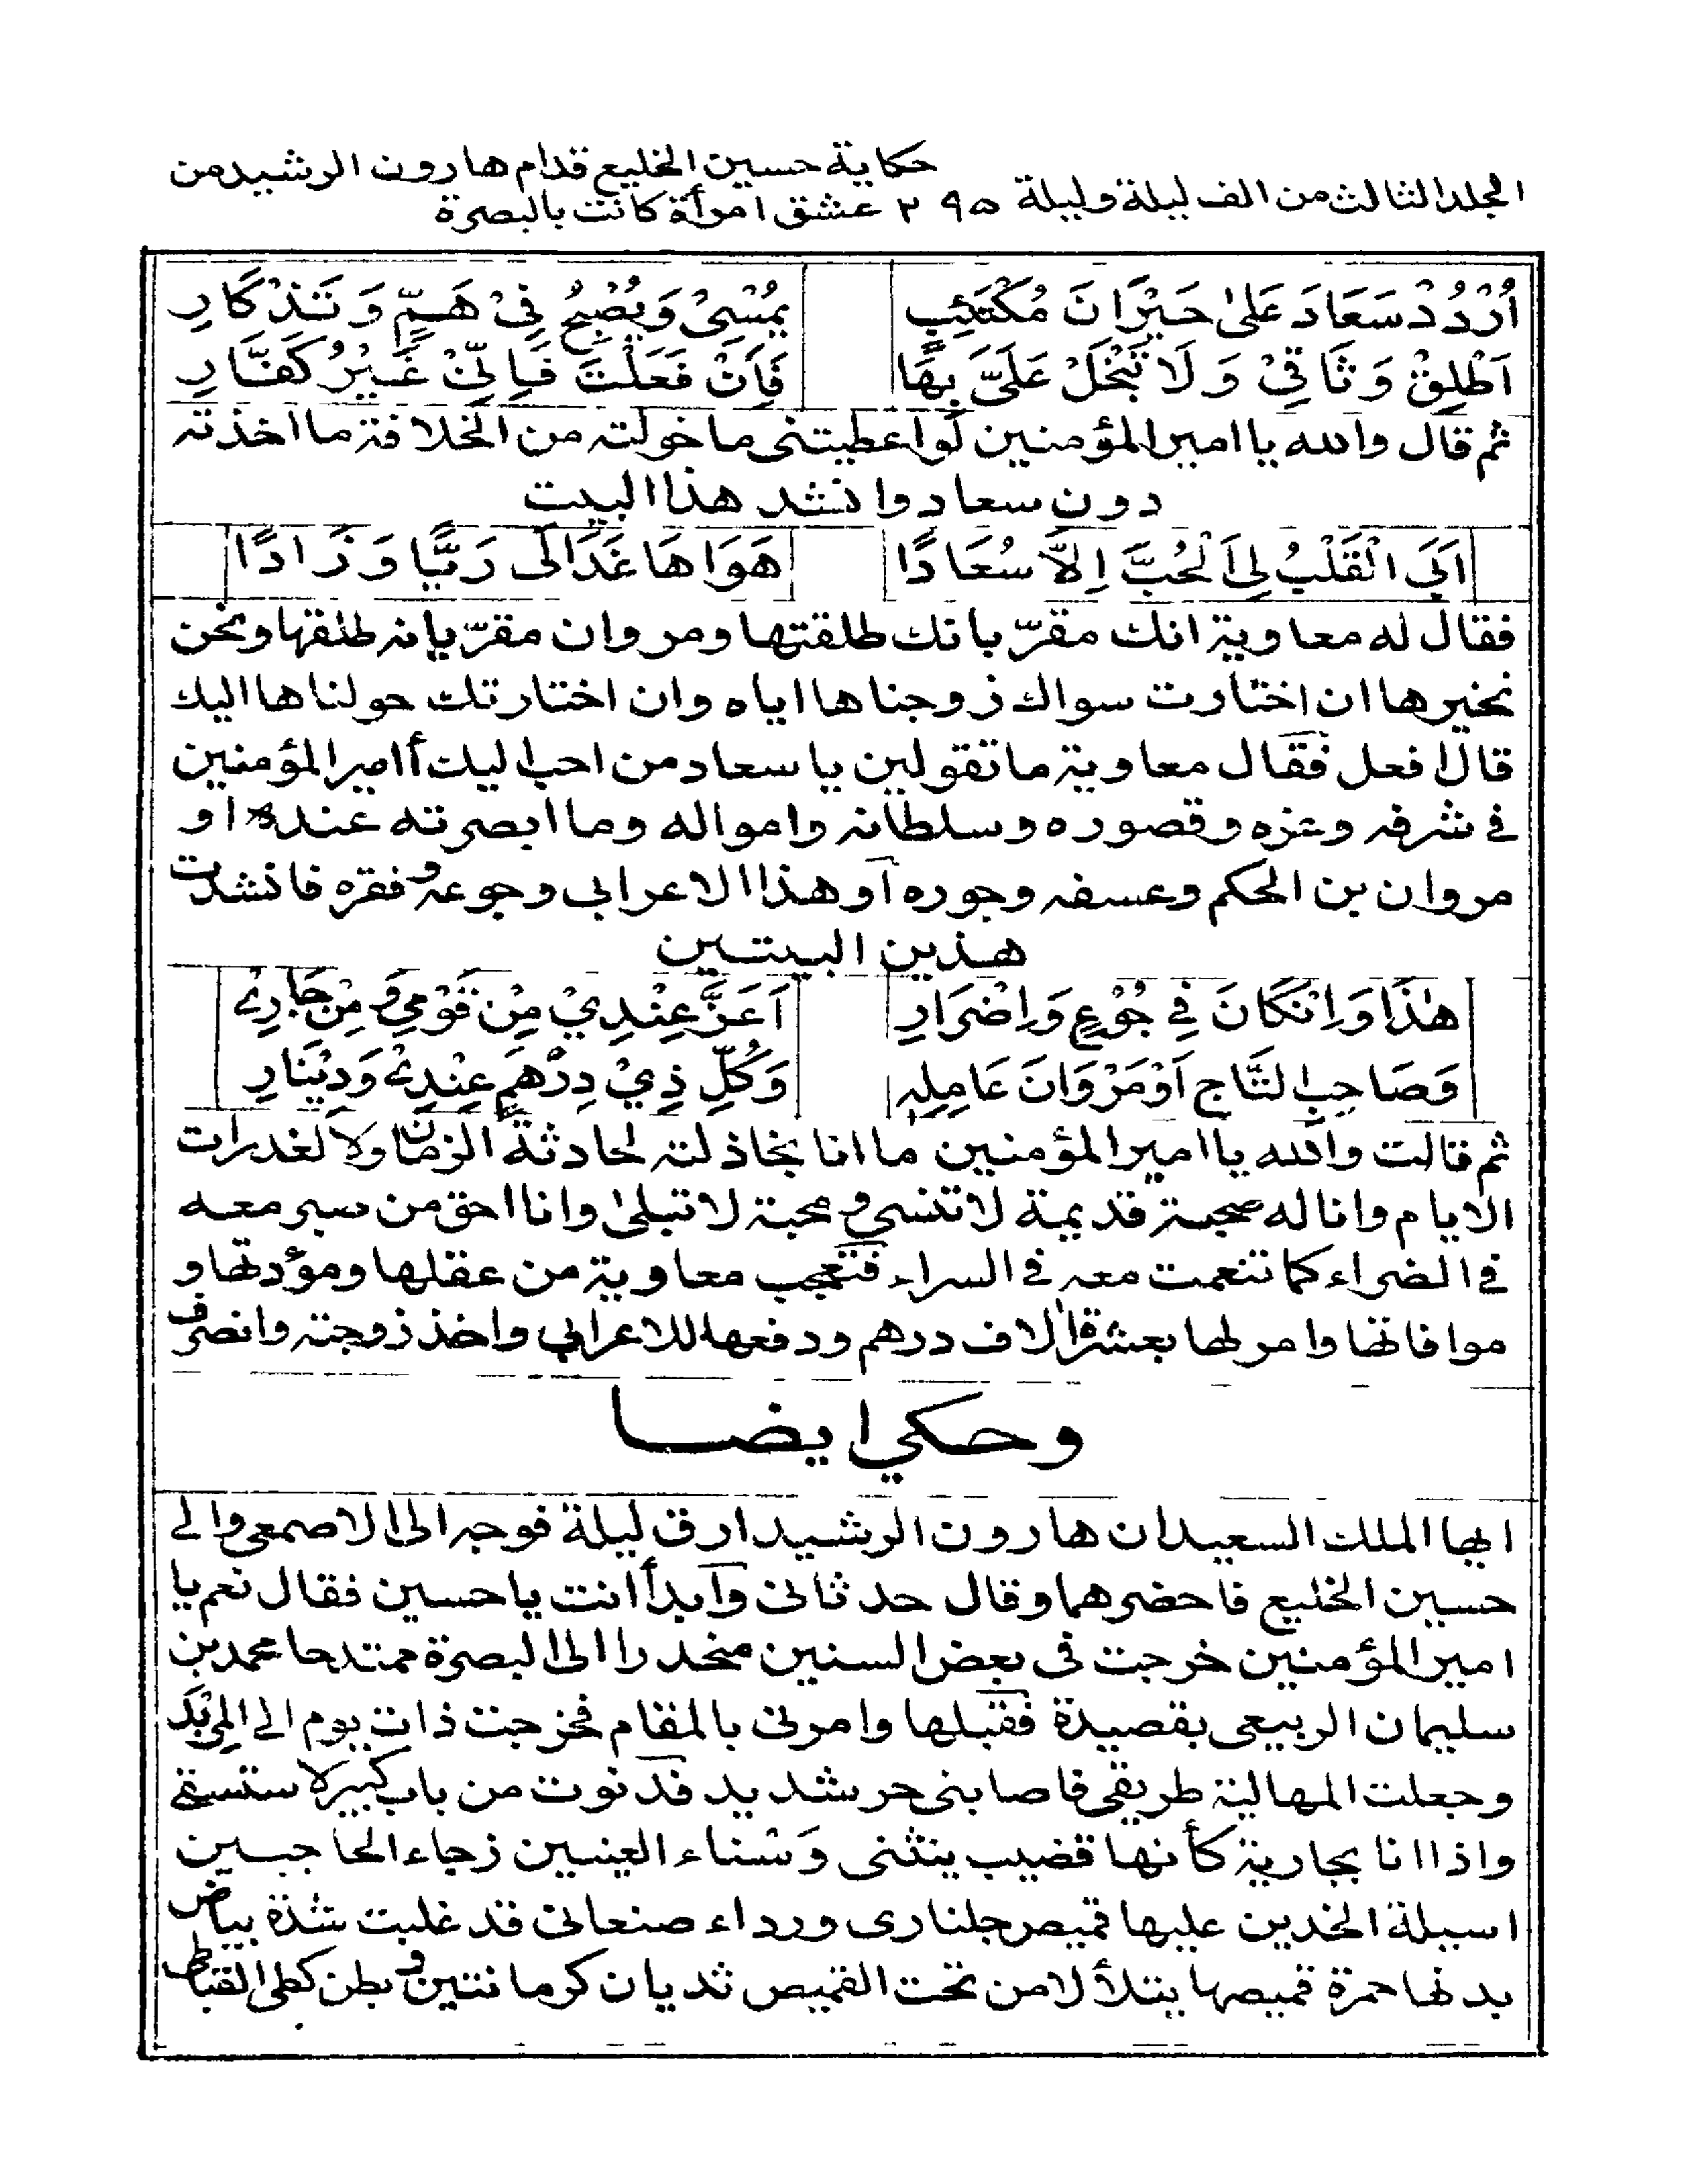 حكاية حسين الخليع قدام هارون الرشيد من
المجلد الثالث من الف ليلة وليلة ٢٩٥ عشق امرأة كانت بالبصرة
اُرْدُدْ سَعَادَ عَلىٰ حَيْرَانَ مُكْتَئِبٍ يُمْسِىْ وَيُصْبِحُ فِىْ هَمٍّ وَتَذْكَارِ
اَطْلِقْ وَثَاقِىْ وَلَا تَبْخَلْ عَلَىَّ بِهَا فَاَنْ فَعَلْتَ فَاِنِّىْ غَيْرُ كَفَّارِ
ثم قال والله يا امير المؤمنين لو اعطيتنى ما خولته من الخلافة ما اخذته
دون سعاد وانشد هذا البيت
اَبَى الْقَلْبُ لِىْ اَلْحُبَّ اِلاَّ سُعَادًا هَوَاهَا غَدَا لَى رَيًّا وَزَادًا
فقال له معاوية انك مقرّ بانك طلقتها ومروان مقرّ بانه طلقها ونحن
نخيرها ان اختارت سواك زوجناها اياه وان اختارتك حولناها اليك
قال افعل فقال معاوية ما تقولين يا سعاد من احب اليك أامير المؤمنين
في شرفه وعزه وقصوره وسلطانه وامواله وما ابصرته عنده او
مروان بن الحكم وعسفه وجوره أو هذا الاعرابي وجوعه وفقره فانشدت
هذين البيتين
هٰذَا وَاِنْ كَانَ فِي جُوْعٍ وَاِضْرَارِ اَعَزُّ عِنْدِيْ مِنْ قَوْمِي وَمِنْ جَارِيْ
وَصَاحِبِ التَّاجِ اَوْ مَرْوَانَ عَامِلِهٖ وَكُلِّ ذِيْ دِرْهَمٍ عِنْدِيْ وَدِيْنَارِ
ثم قالت والله يا امير المؤمنين ما انا بخاذلته لحادثة الزمان ولا لغدرات
الايام وانا له صحبة قديمة لا تنسى ومحبة لا تبلى وانا احق من صبر معه
في الضراء كما تنعمت معه في السراء فتعجب معاوية من عقلها ومودتها و
موافاتها وامر لها بعشرة الاف درهم ودفعها للاعرابي واخذ زوجته وانصرف
وحكي ايضا
ايها الملك السعيد ان هارون الرشيد ارق ليلة فوجه الى الاصمعي والى
حسين الخليع فاحضرهما وقال حدثانى وابدأ انت يا حسين فقال نعم يا
امير المؤمنين خرجت فى بعض السنين منحدرا الى البصرة ممتدحا محمد بن
سليمان الربيعى بقصيدة فقبلها وامرنى بالمقام فخرجت ذات يوم الى المِرْبَد
وجعلت المهالية طريقي فاصابنى حر شديد فدنوت من باب كبير لاستسقي
واذا انا بجارية كأنها قضيب ينثنى وَسْناء العينين زجاء الحاجبين
اسيلة الخدين عليها قميص جلنارى ورداء صنعانى قد غلبت شدة بياض
بدنها حمرة قميصها يتلألا من تحت القميص ثديان كرمانتين وبطن كطى القباطى